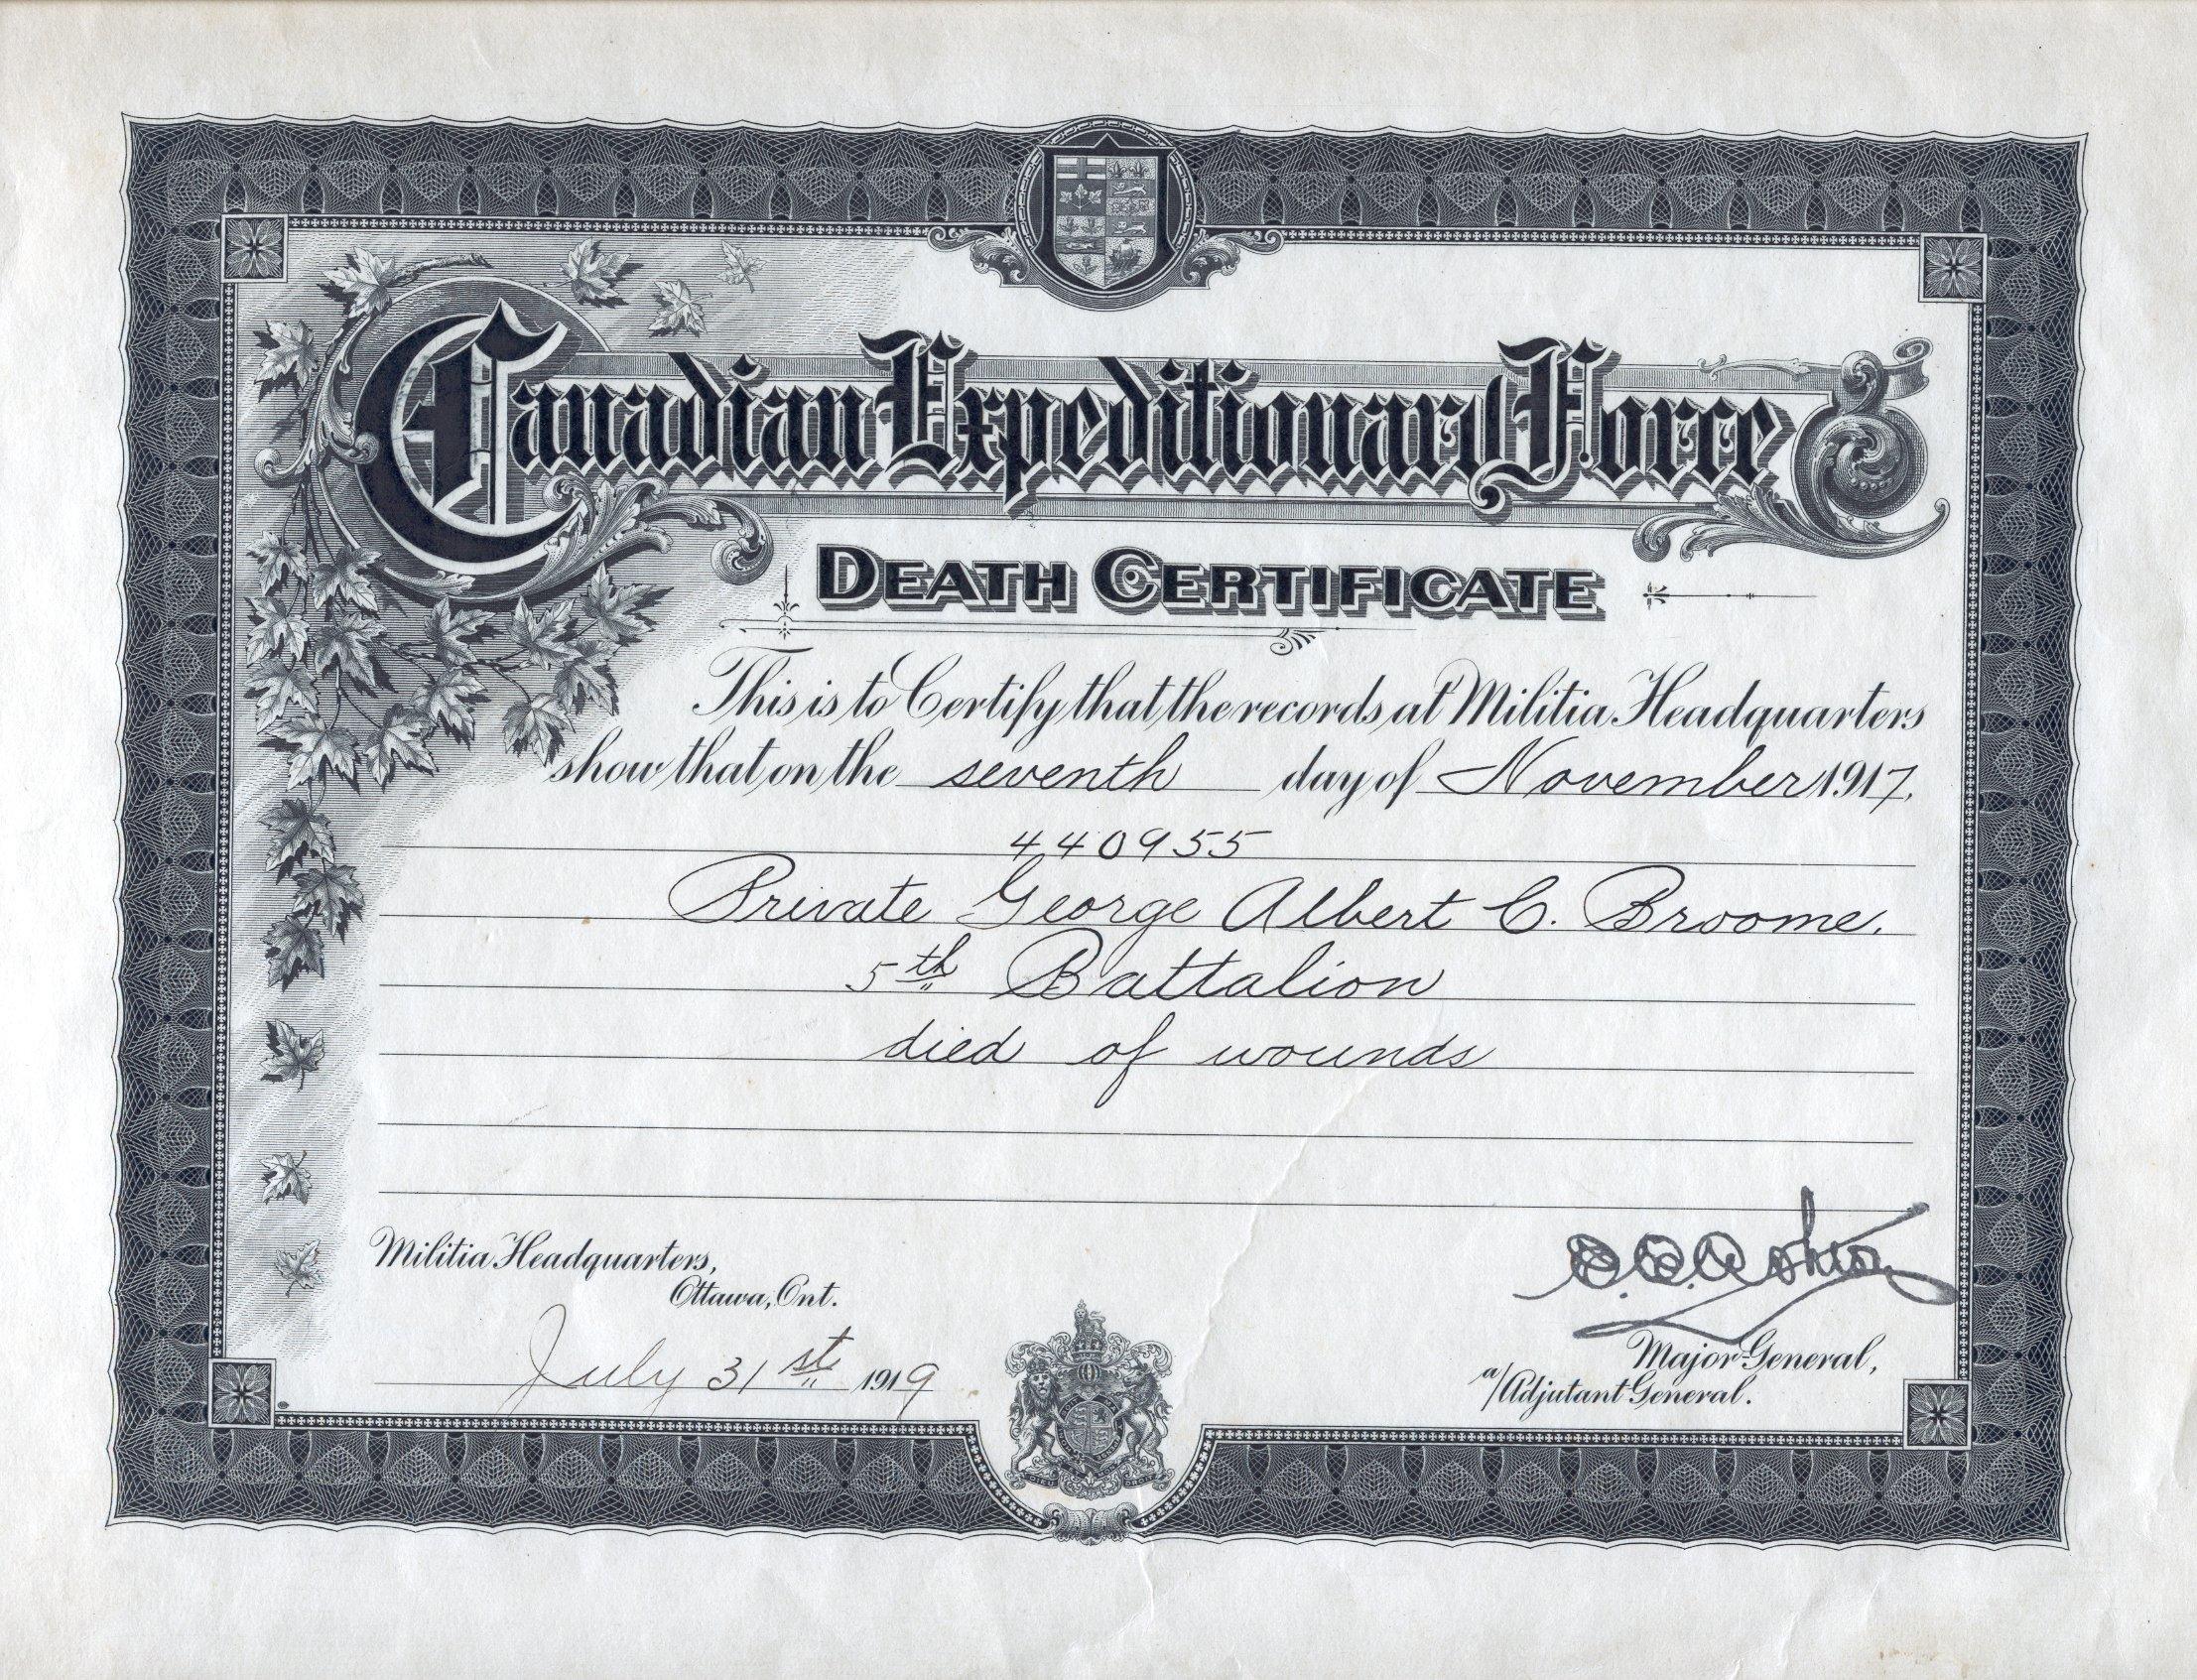 Canadian Expeditionary Force
DEATH CERTIFICATE
This is to Certify that the records at Militia Headquarters
show that on the seventh day of November 1917,
440955
Private George Albert C. Broome.
5th Battalion
died of wounds
Militia Headquarters,
Ottawa, Ont.
July 31st 1919
Major-General,
a/Adjutant General.